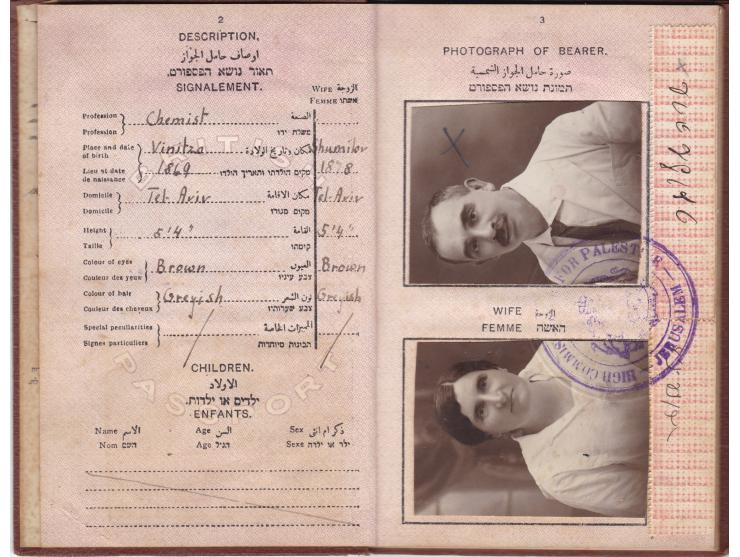 2
DESCRIPTION,
اوصاف حامل الجواز
תאור נושא הפספורט.
SIGNALEMENT.
WIFE الزوجة
FEMME אשתו
Profession } Chemist الصنعة
Profession משלח ידו
Place and date of birth } Vinitza مكان وتاريخ الولادة Shumilov
Lieu et date de naissance 1869 מקום הולדתו ותאריך הולדו 1878
Domicile } Tel-Aviv مكان الاقامة Tel-Aviv
Domicile מקום מגורו
Height } 5'4" القامة 5'4"
Taille קומתו
Colour of eyes } Brown العيون Brown
Couleur des yeux צבע עיניו
Colour of hair } Greyish لون الشعر Greyish
Couleur des cheveux צבע שערותיו
Special peculiarities } المميزات الخاصة
Signes particuliers תכונות מיוחדות
PASSPORT
CHILDREN.
الاولاد
ילדים או ילדות.
ENFANTS.
Name الاسم Age السن Sex ذكر ام انثى
Nom השם Age הגיל Sexe ילד או ילדה
3
PHOTOGRAPH OF BEARER.
صورة حامل الجواز الشمسية
תמונת נושא הפספורט
WIFE الزوجة
FEMME האשה
HIGH COMMIS FOR PALESTINE — JERUSALEM